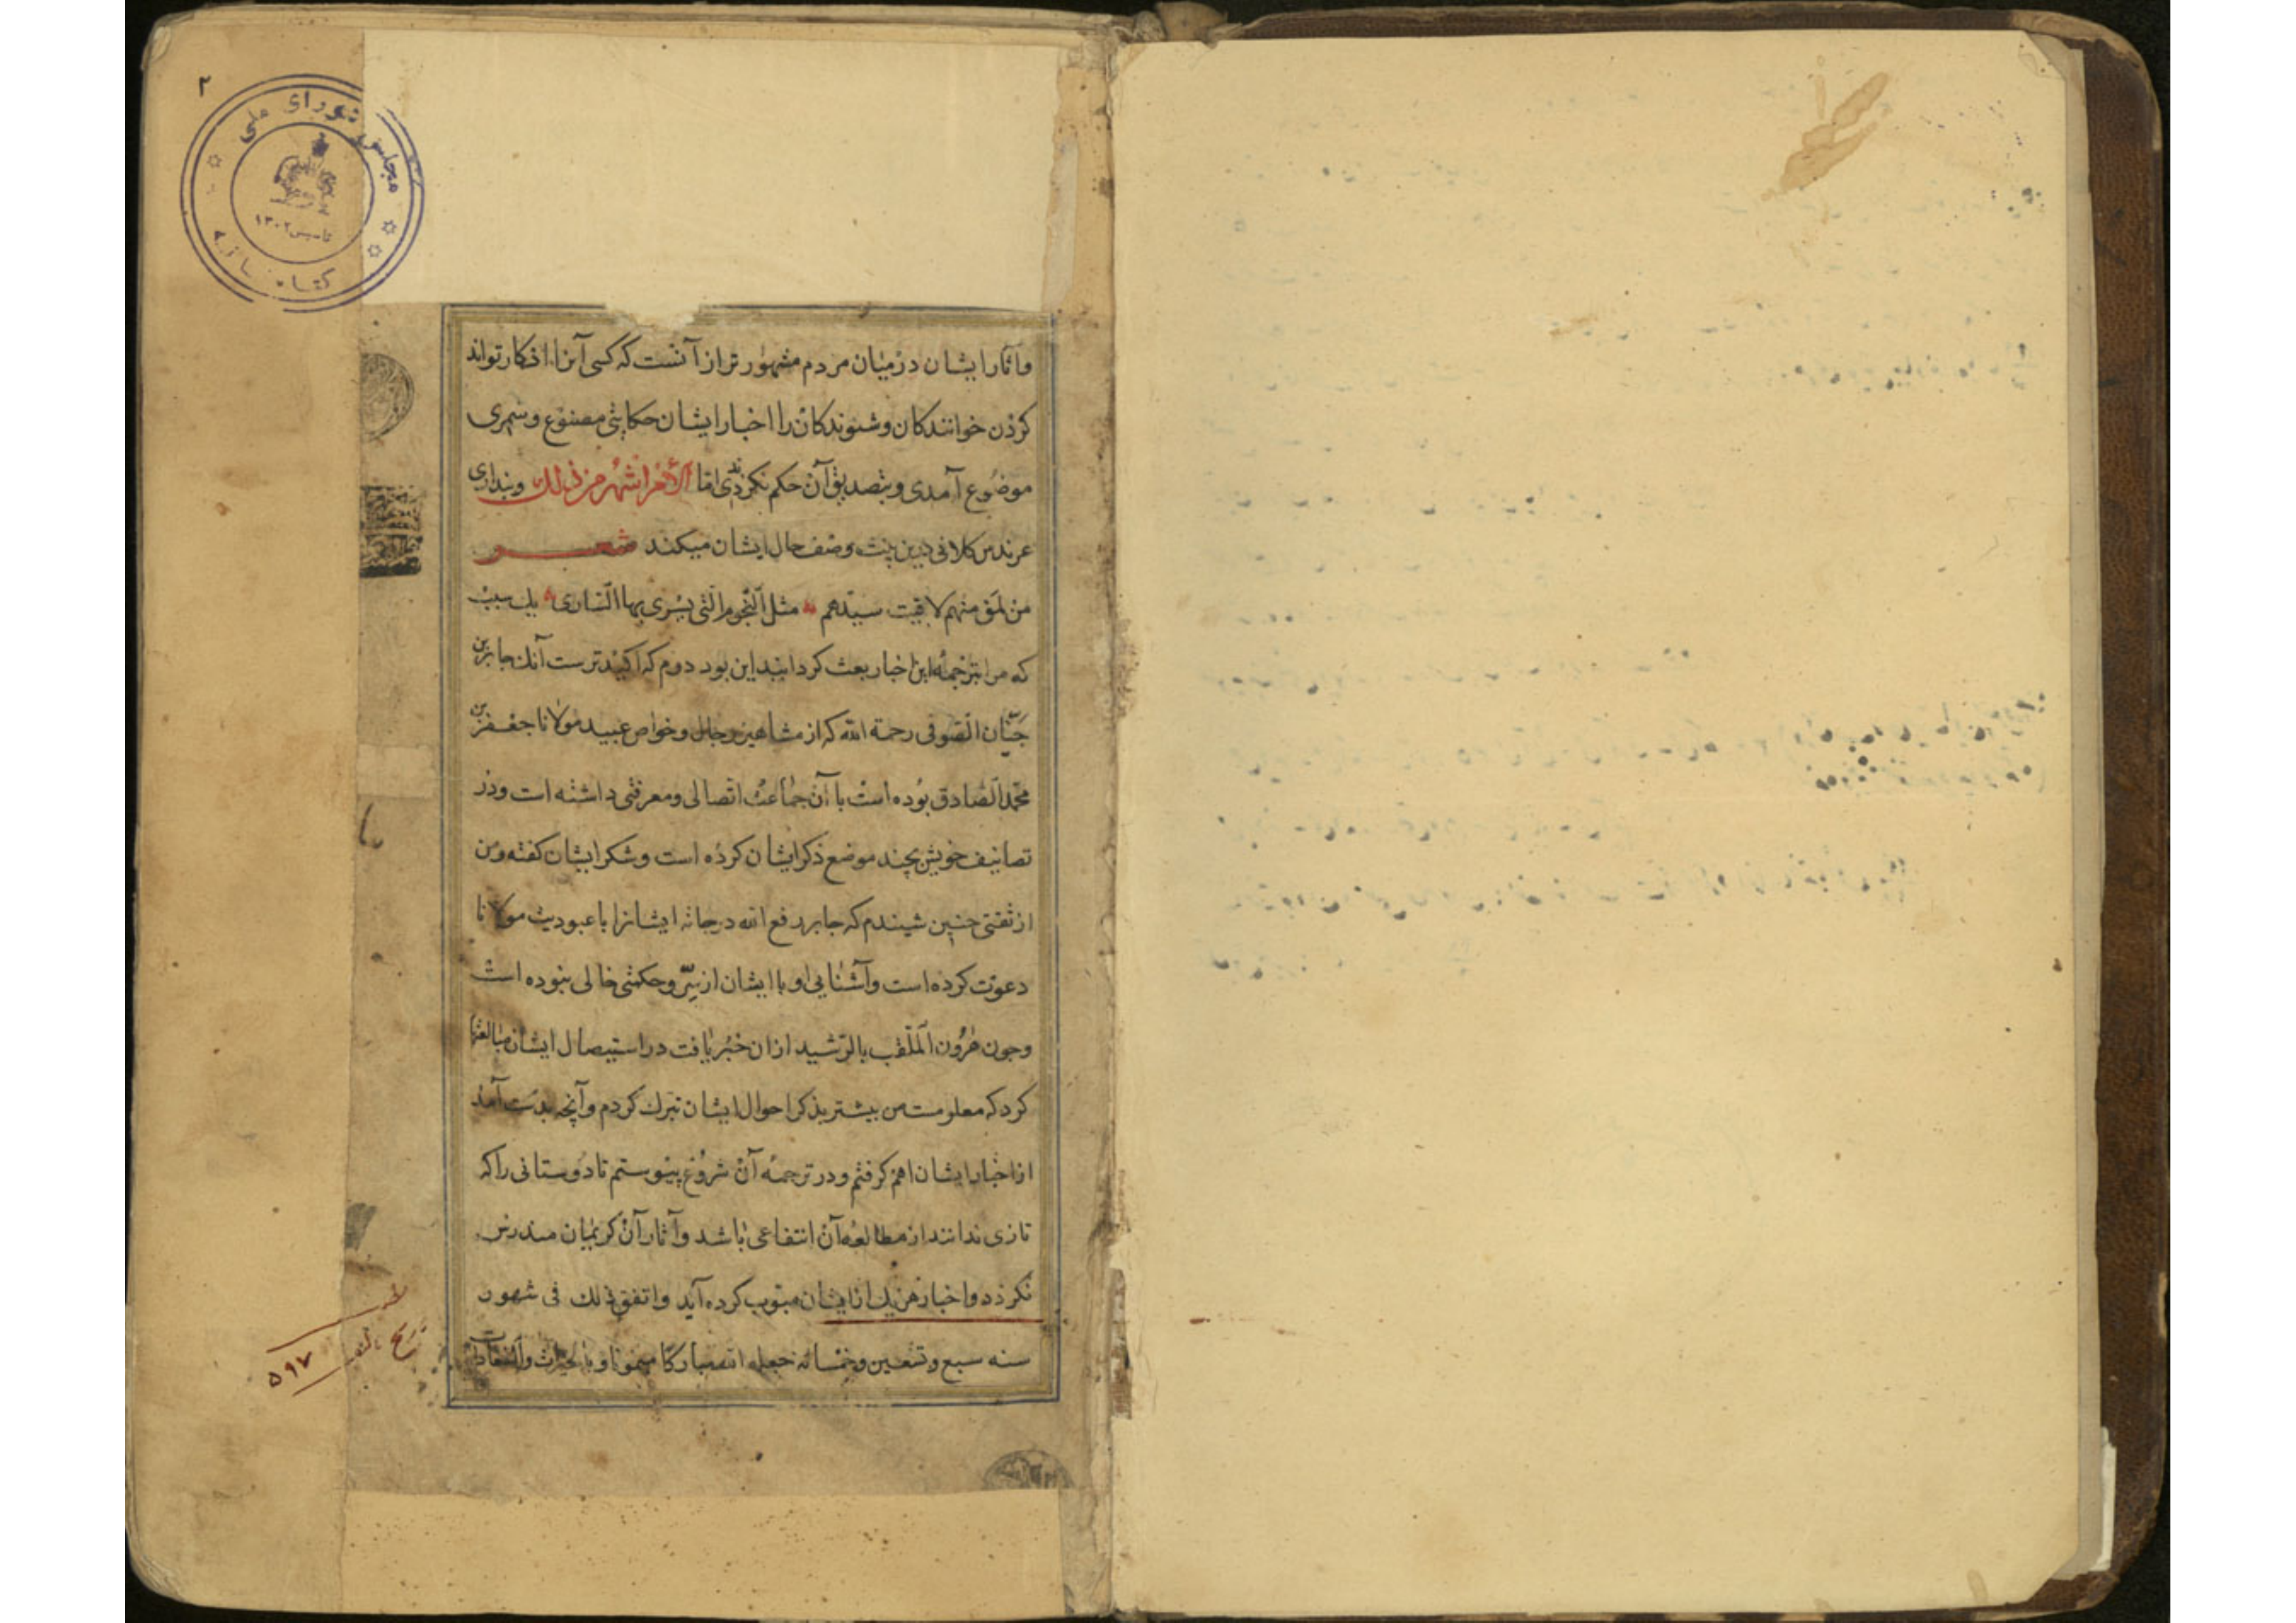 ۲
مجلس شورای ملی
تاسیس ۱۳۰۲
کتابخانه
وآثار ایشان در میان مردم مشهور تر از آنست که کسی آنرا انکار تواند
کردن خوانندکان و شنوندکان را اخبار ایشان حکایتی مصنوع و سمری
موضوع آمدی و بتصدیق آن حکم نکردندی اما الأمر اشهر من ذلك و پنداری
عرندس کلابی دین بیت وصف حال ایشان میکند شعر
من تلق منهم لاقیت سیدهم مثل النجوم التی یسری بها الساری یك سبب
که مرا بترجمهٔ این اخبار بعث کردانید این بود دوم که اکیدترست آنك جابر بن
حیان الصوفی رحمة الله که از مشاهیر رجال و خواص عبید مولانا جعفر بن
محمد الصادق بوده است با آن جماعت اتصالی و معرفتی داشته است و در
تصانیف خویش بچند موضع ذکر ایشان کرده است و شکر ایشان کفته و من
از ثقتی جنین شنیدم که جابر رفع الله درجاته ایشانرا با عبودیت مولانا
دعوت کرده است و آشنایی او با ایشان از سر و حکمتی خالی نبوده است
وجون هرون الملقب بالرشید ازان خبر یافت در استیصال ایشان مبالغتها
کرد که معلومست من بیشتر بذکر احوال ایشان تبرك کردم و آنچه بدست آمد
از اخبار ایشان اهم کرفتم و در ترجمهٔ آن شروع پیوستم تا دوستانی را که
تازی ندانند از مطالعهٔ آن انتفاعی باشد و آثار آن کریمان مندرس
نکردد و اخبار هر یك از ایشان مبوب کرده آید و اتفق ذلك فی شهور
سنه سبع و تسعین و خمسائه جعله الله مبارکا میمونا و بالخیرات و السعادات
تاریخ تألیف
۵۹۷